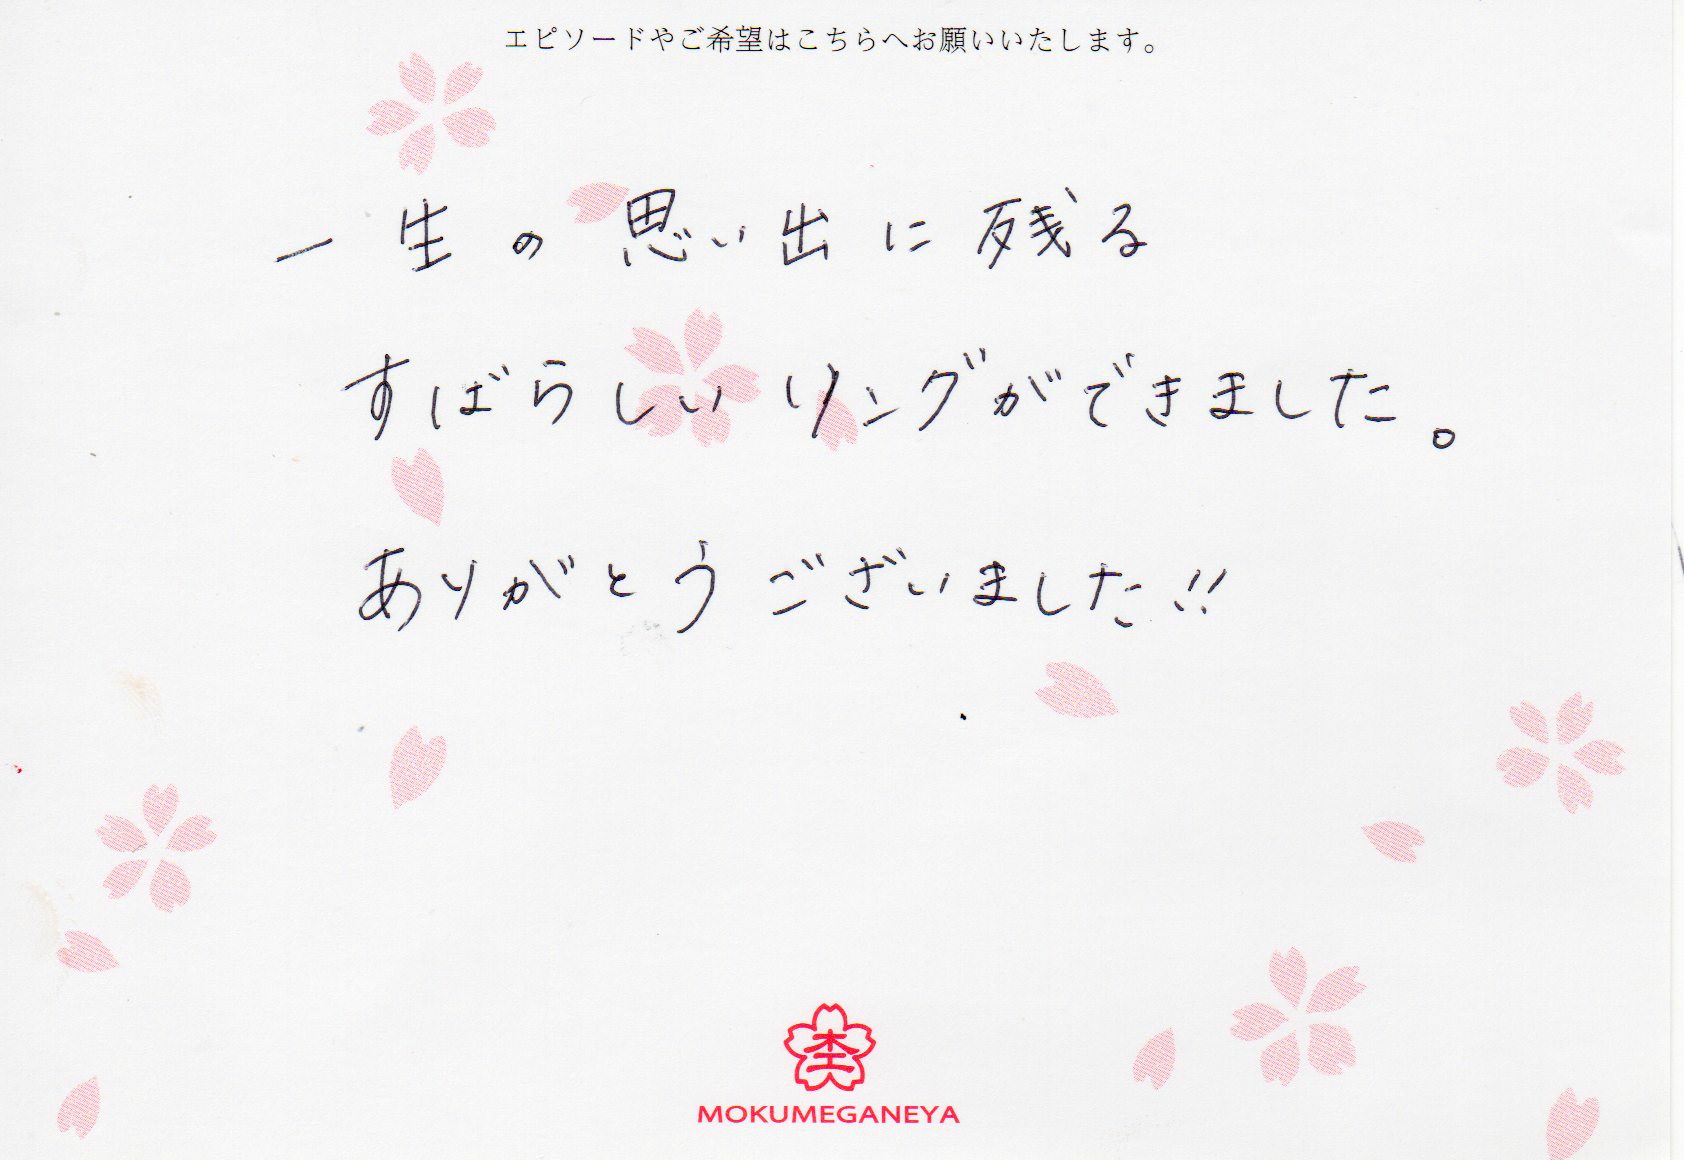 エピソードやご希望はこちらへお願いいたします。
一生の思い出に残る
すばらしいリングができました。
ありがとうございました!!
MOKUMEGANEYA